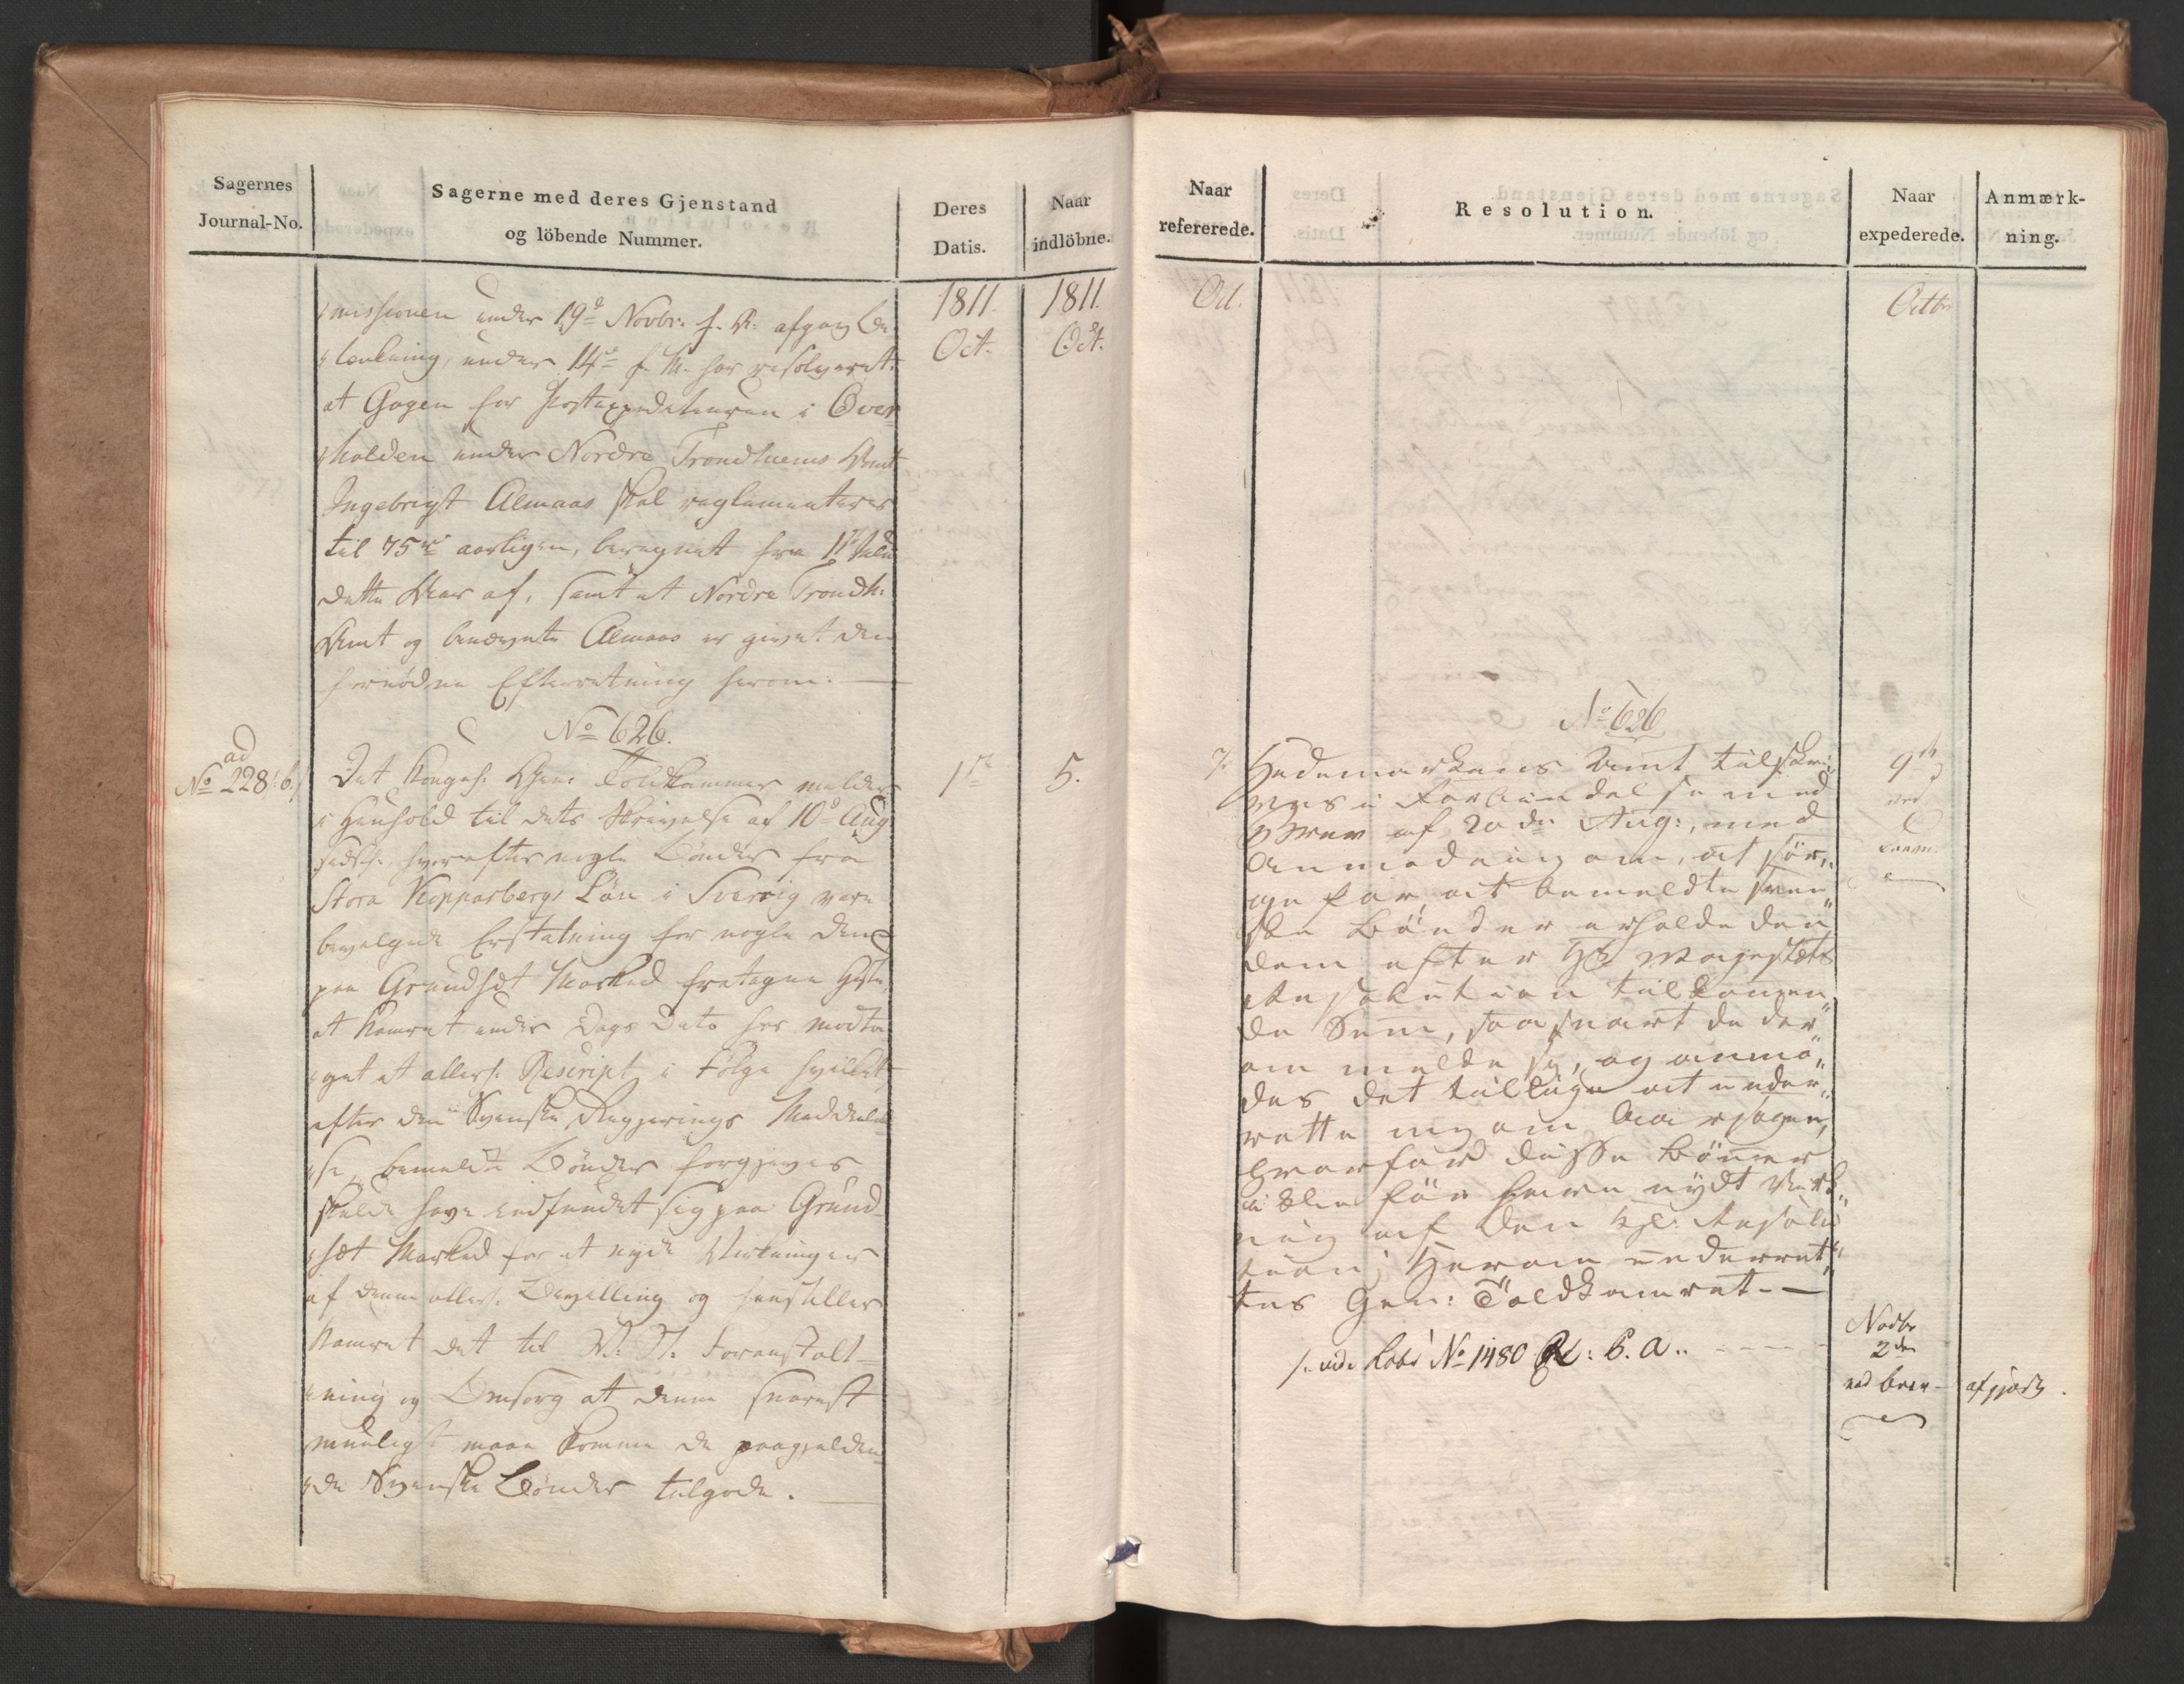 Sagernes
Journal-No.
Sagerne med deres Gjenstand
og löbende Nummer.
Deres
Datis.
Naar
indlöbne.
1811.
Oct.
1811.
Oct.
missionen under 19de Novbr. f. A. afgang Be-
tænkning, under 14de f. M. har resolveret:
at Gagen for Postexpediteuren i Over-
halden under Nordre Trondhiems Amt
Ingebrigt Almaas skal reglementeres
til 75 rd aarligen, beregnet fra 1ste
dette Aar af, samt at Nordre Trondh:
Amt og benævnte Almaas er givet den
fornødne Efterretning herom.
No 626.
ad
No 228 b.
Det Kongel. Gen: Toldkammer melder
i Henhold til dets Skrivelse af 10de Aug
sidstl. hvorefter nogle Bönder fra
Stora Kopparbergs Län i Sverrig vare
bevilgede Erstatning for nogle dem
paa Grundset Marked fratagne Heste,
at Kamret under Dags Dato har modta-
get et allerh. Rescript i Fölge hvilket
efter den Svenske Regjerings Meddelel-
se, bemeldte Bönder forgjeves
skulde have indfundet sig paa Grund-
set Marked for at nyde Virkninger
af denne allerh. Bevilling og henstiller
Kamret det til R. C. Foranstalt-
ning og Omsorg at denne snarest
mueligst maae komme de paagjelden-
de Svenske Bönder tilgode.
1ste
5.
Naar
refererede.
Resolution.
Naar
expederede.
Anmærk-
ning.
Oct.
Octbr
No 626
7.
Hedemarkens Amt tilskri-
ves i Forbindelse med
Brev af 20de Aug:, med
Anmodning om, at sör-
ge for, at bemeldte sven-
ske Bönder erholde den
dem efter Hs Majestets
Resolution tilkommen-
de Sum, saasnart de der-
om melde sig, og anmo-
des det tillige at under-
rette mig om Aarsagen,
hvorfor disse Bönder
ikke för have nydt Virk-
ning af den kgl. Resolu-
tion; Herom underret-
tes Gen: Toldkamret. —
9de
ved
/: vid. Lobe No 1480 R: C. a..
Novbr
2den
ved brev
afgjort.